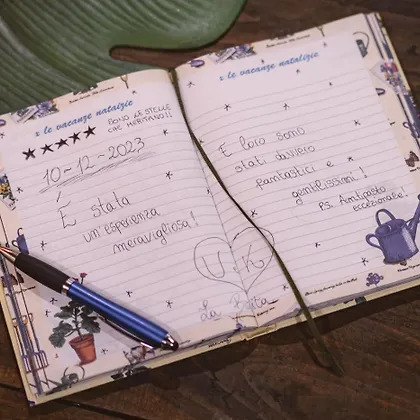 x le vacanze natalizie
SONO LE STELLE
CHE MERITANO!!
10-12-2023
È stata
un'esperienza
meravigliosa!
x le vacanze natalizie
E loro sono
stati davvero
fantastici e
gentilissimi!
P.S. Antipasto
eccezionale!
La